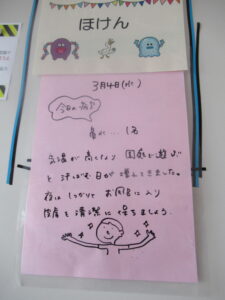 ほけん
3月4日(水)
今日のお休み
鼻水…1名
気温が高くなり 園庭で遊ぶ
と 汗ばむ日が 増えてきました。
夜は しっかりと お風呂に入り
皮膚を 清潔に 保ちましょう。